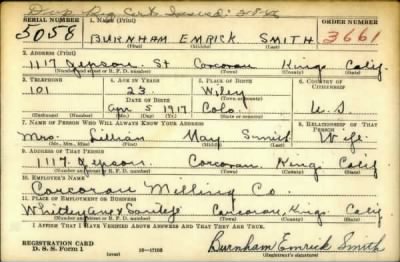 Dup Reg Cert Issued: 2-8-45
SERIAL NUMBER 1. NAME (Print) ORDER NUMBER
5058 BURNHAM EMRICK SMITH 3661
(First) (Middle) (Last)
2. ADDRESS (Print)
1117 Jepson St Corcoran Kings Calif
(Number and street or R. F. D. number) (Town) (County) (State)
3. TELEPHONE 4. AGE IN YEARS 5. PLACE OF BIRTH 6. COUNTRY OF CITIZENSHIP
101 23 Wiley
DATE OF BIRTH (Town or county)
Apr 5 1917 Colo. U.S.
(Exchange) (Number) (Mo.) (Day) (Yr.) (State or country)
7. NAME OF PERSON WHO WILL ALWAYS KNOW YOUR ADDRESS 8. RELATIONSHIP OF THAT PERSON
Mrs. Lillian May Smith Wife
(Mr., Mrs., Miss) (First) (Middle) (Last)
9. ADDRESS OF THAT PERSON
1117 Jepson Corcoran Kings Calif
(Number and street or R. F. D. number) (Town) (County) (State)
10. EMPLOYER'S NAME
Corcoran Milling Co.
11. PLACE OF EMPLOYMENT OR BUSINESS
Whitley Ave & Corcoran, Kings Calif
(Number and street or R. F. D. number) (Town) (County) (State)
I AFFIRM THAT I HAVE VERIFIED ABOVE ANSWERS AND THAT THEY ARE TRUE.
REGISTRATION CARD
D. S. S. Form 1 (over) 16—17105 Burnham Emrick Smith
(Registrant's signature)